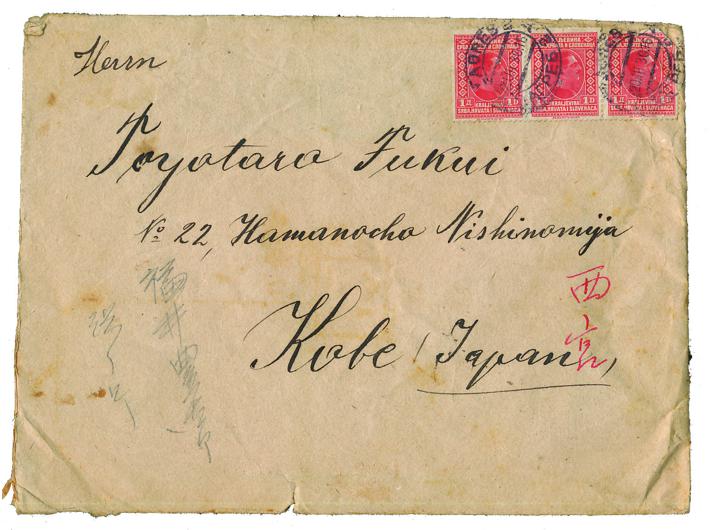 Herrn
Toyotaro Fukui
No 22, Hamanocho Nishinomija
Kobe (Japan)
西宮
福井豊太郎
KRALJEVINA
SRBA, HRVATA I SLOVENACA
1 Д 1 D
KRALJEVINA
SRBA, HRVATA I SLOVENACA
1 Д 1 D
KRALJEVINA
SRBA, HRVATA I SLOVENACA
1 Д 1 D